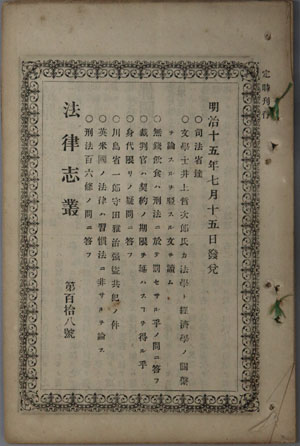 定時刊行
明治十五年七月十五日發兌
○司法省達
○文學士井上哲次郎氏カ法學ト經濟學ノ關係
ヲ論スルヲ駁スル文ヲ讀ム
○無錢飲食ハ刑法ニ於テ罰セサル乎ノ問ニ答フ
○裁判官ハ契約ノ期限ヲ延ハスコヲ得ル乎
○身代限リノ疑問ニ答フ
○川島省一郎守田雅治強盜共犯ノ件
○英米國ノ法律ハ習慣法ニ非サルヲ論ス
○刑法百六條ノ問ニ答フ
法律志叢
第百拾八號